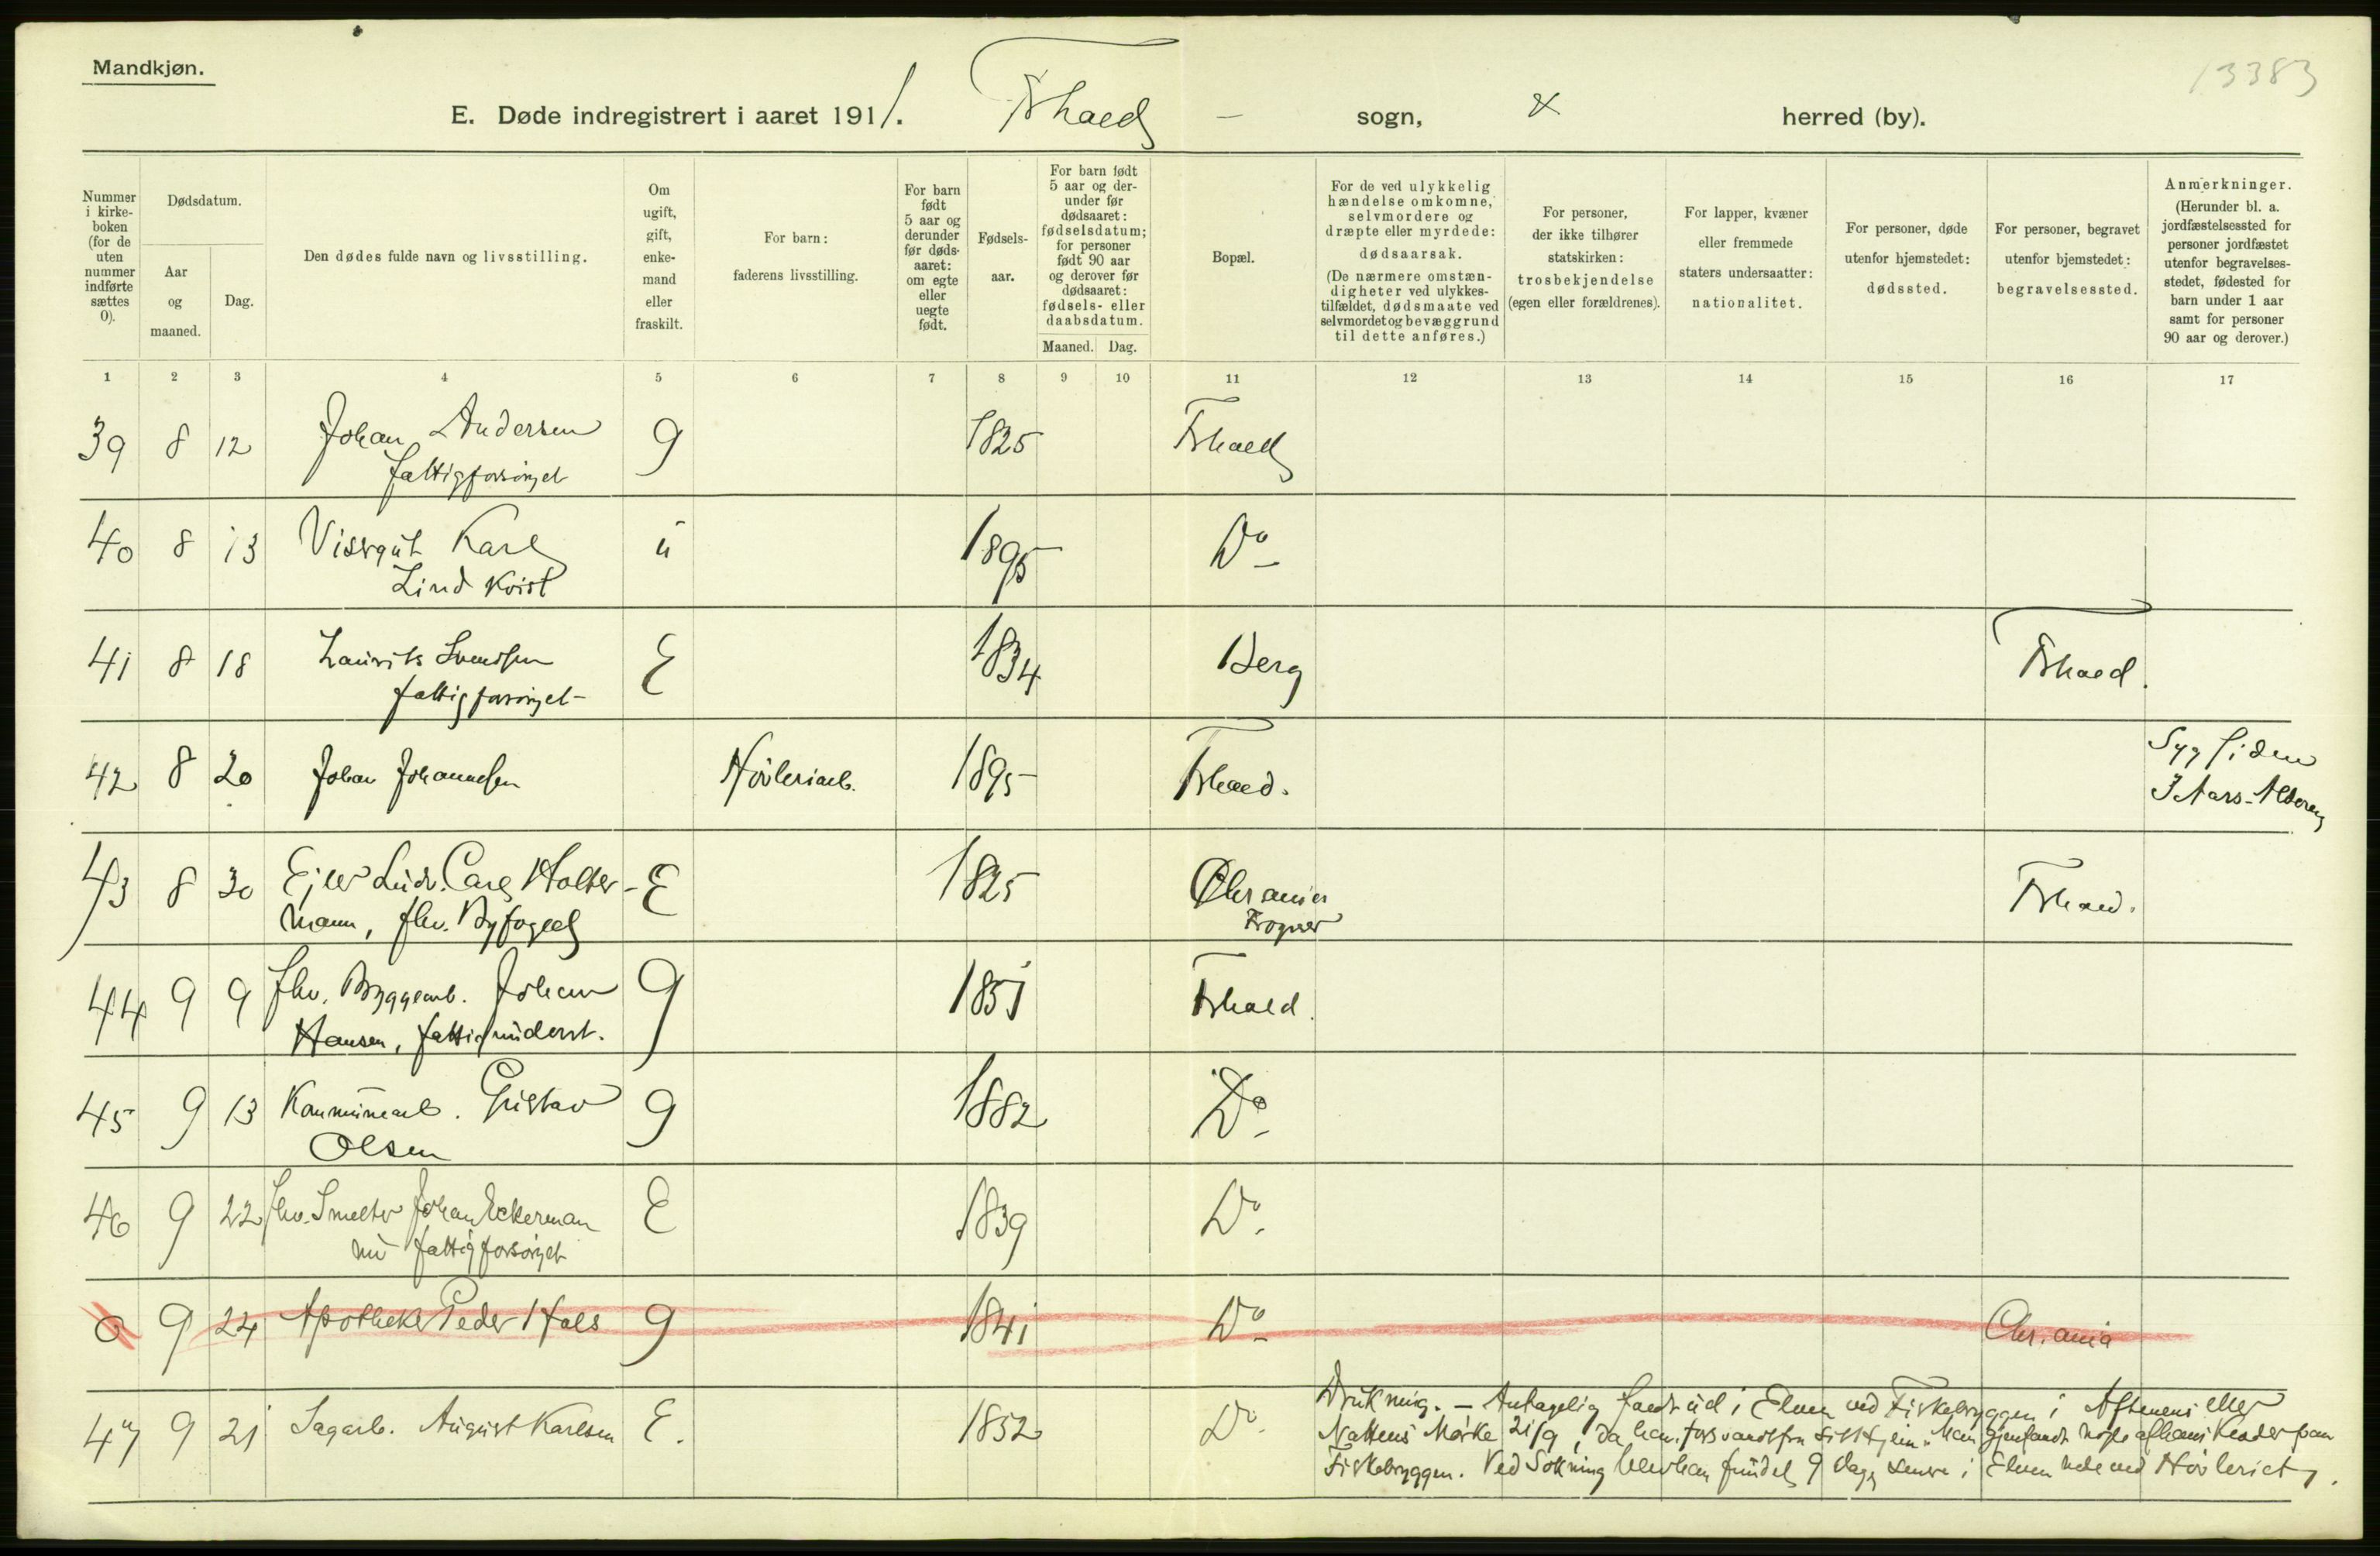 Mandkjøn.
13383
E. Døde indregistrert i aaret 1911. Frhald - sogn, herred (by).
Nummer i kirke-boken (for de uten nummer indførte sættes 0).
Dødsdatum.
Aar og maaned.
Dag.
Den dødes fulde navn og livsstilling.
Om ugift, gift, enke-mand eller fraskilt.
For barn: faderens livsstilling.
For barn født 5 aar og derunder før døds-aaret: om egte eller uegte født.
Fødsels-aar.
For barn født 5 aar og der-under før dødsaaret: fødselsdatum; for personer født 90 aar og derover før dødsaaret: fødsels- eller daabsdatum.
Maaned. Dag.
Bopæl.
For de ved ulykkelig hændelse omkomne, selvmordere og dræpte eller myrdede: dødsaarsak. (De nærmere omstæn-digheter ved ulykkes-tilfældet, dødsmaate ved selvmordet og bevæggrund til dette anføres.)
For personer, der ikke tilhører statskirken: trosbekjendelse (egen eller forældrenes).
For lapper, kvæner eller fremmede staters undersaatter: nationalitet.
For personer, døde utenfor hjemstedet: dødssted.
For personer, begravet utenfor hjemstedet: begravelsessted.
Anmerkninger. (Herunder bl. a. jordfæstelsessted for personer jordfæstet utenfor begravelses-stedet, fødested for barn under 1 aar samt for personer 90 aar og derover.)
1 2 3 4 5 6 7 8 9 10 11 12 13 14 15 16 17
39 8 12 Johan Andersen g 1825 Frhald
fattigforsörget
40 8 13 Karl ü 1895 Do -
Lindkvist
41 8 18 Laurits Svendsen E 1834 Berg Frhald.
fattigforsörget -
42 8 20 Johan Johannesen Hövleriarb. 1895 Frhald. Syg siden
3 Aars-Alderen
43 8 30 Ejler Ludv. Carl Holter- E 1825 Chrania Frhald.
mann, fhv. Byfoged Frogner
44 9 9 fhv. Byggearb. Johan g 1851 Frhald.
Hansen, fattigunderst.
45 9 13 Kommunearb. Gustav g 1882 Do -
Olsen
46 9 22 fhv. Smelter Johan Eckerman E 1839 Do -
nu fattigforsörget
0 9 24 Apotheker Peder Hals g 1841 Do - Chr.ania
47 9 21 Sagarb. August Karlsen E. 1852 Do -
Drukning. - Antagelig faldt ud i Elven ved Fiskebryggen i Aftenens eller
Nattens Mørke 21/9, da han forsvandt fra sit Hjem. Man gjenfandt nogle af hans Klæder paa
Fiskebryggen. Ved Sökning blev han fundet 9 Dage senere i Elven nede ved Hövleriet.